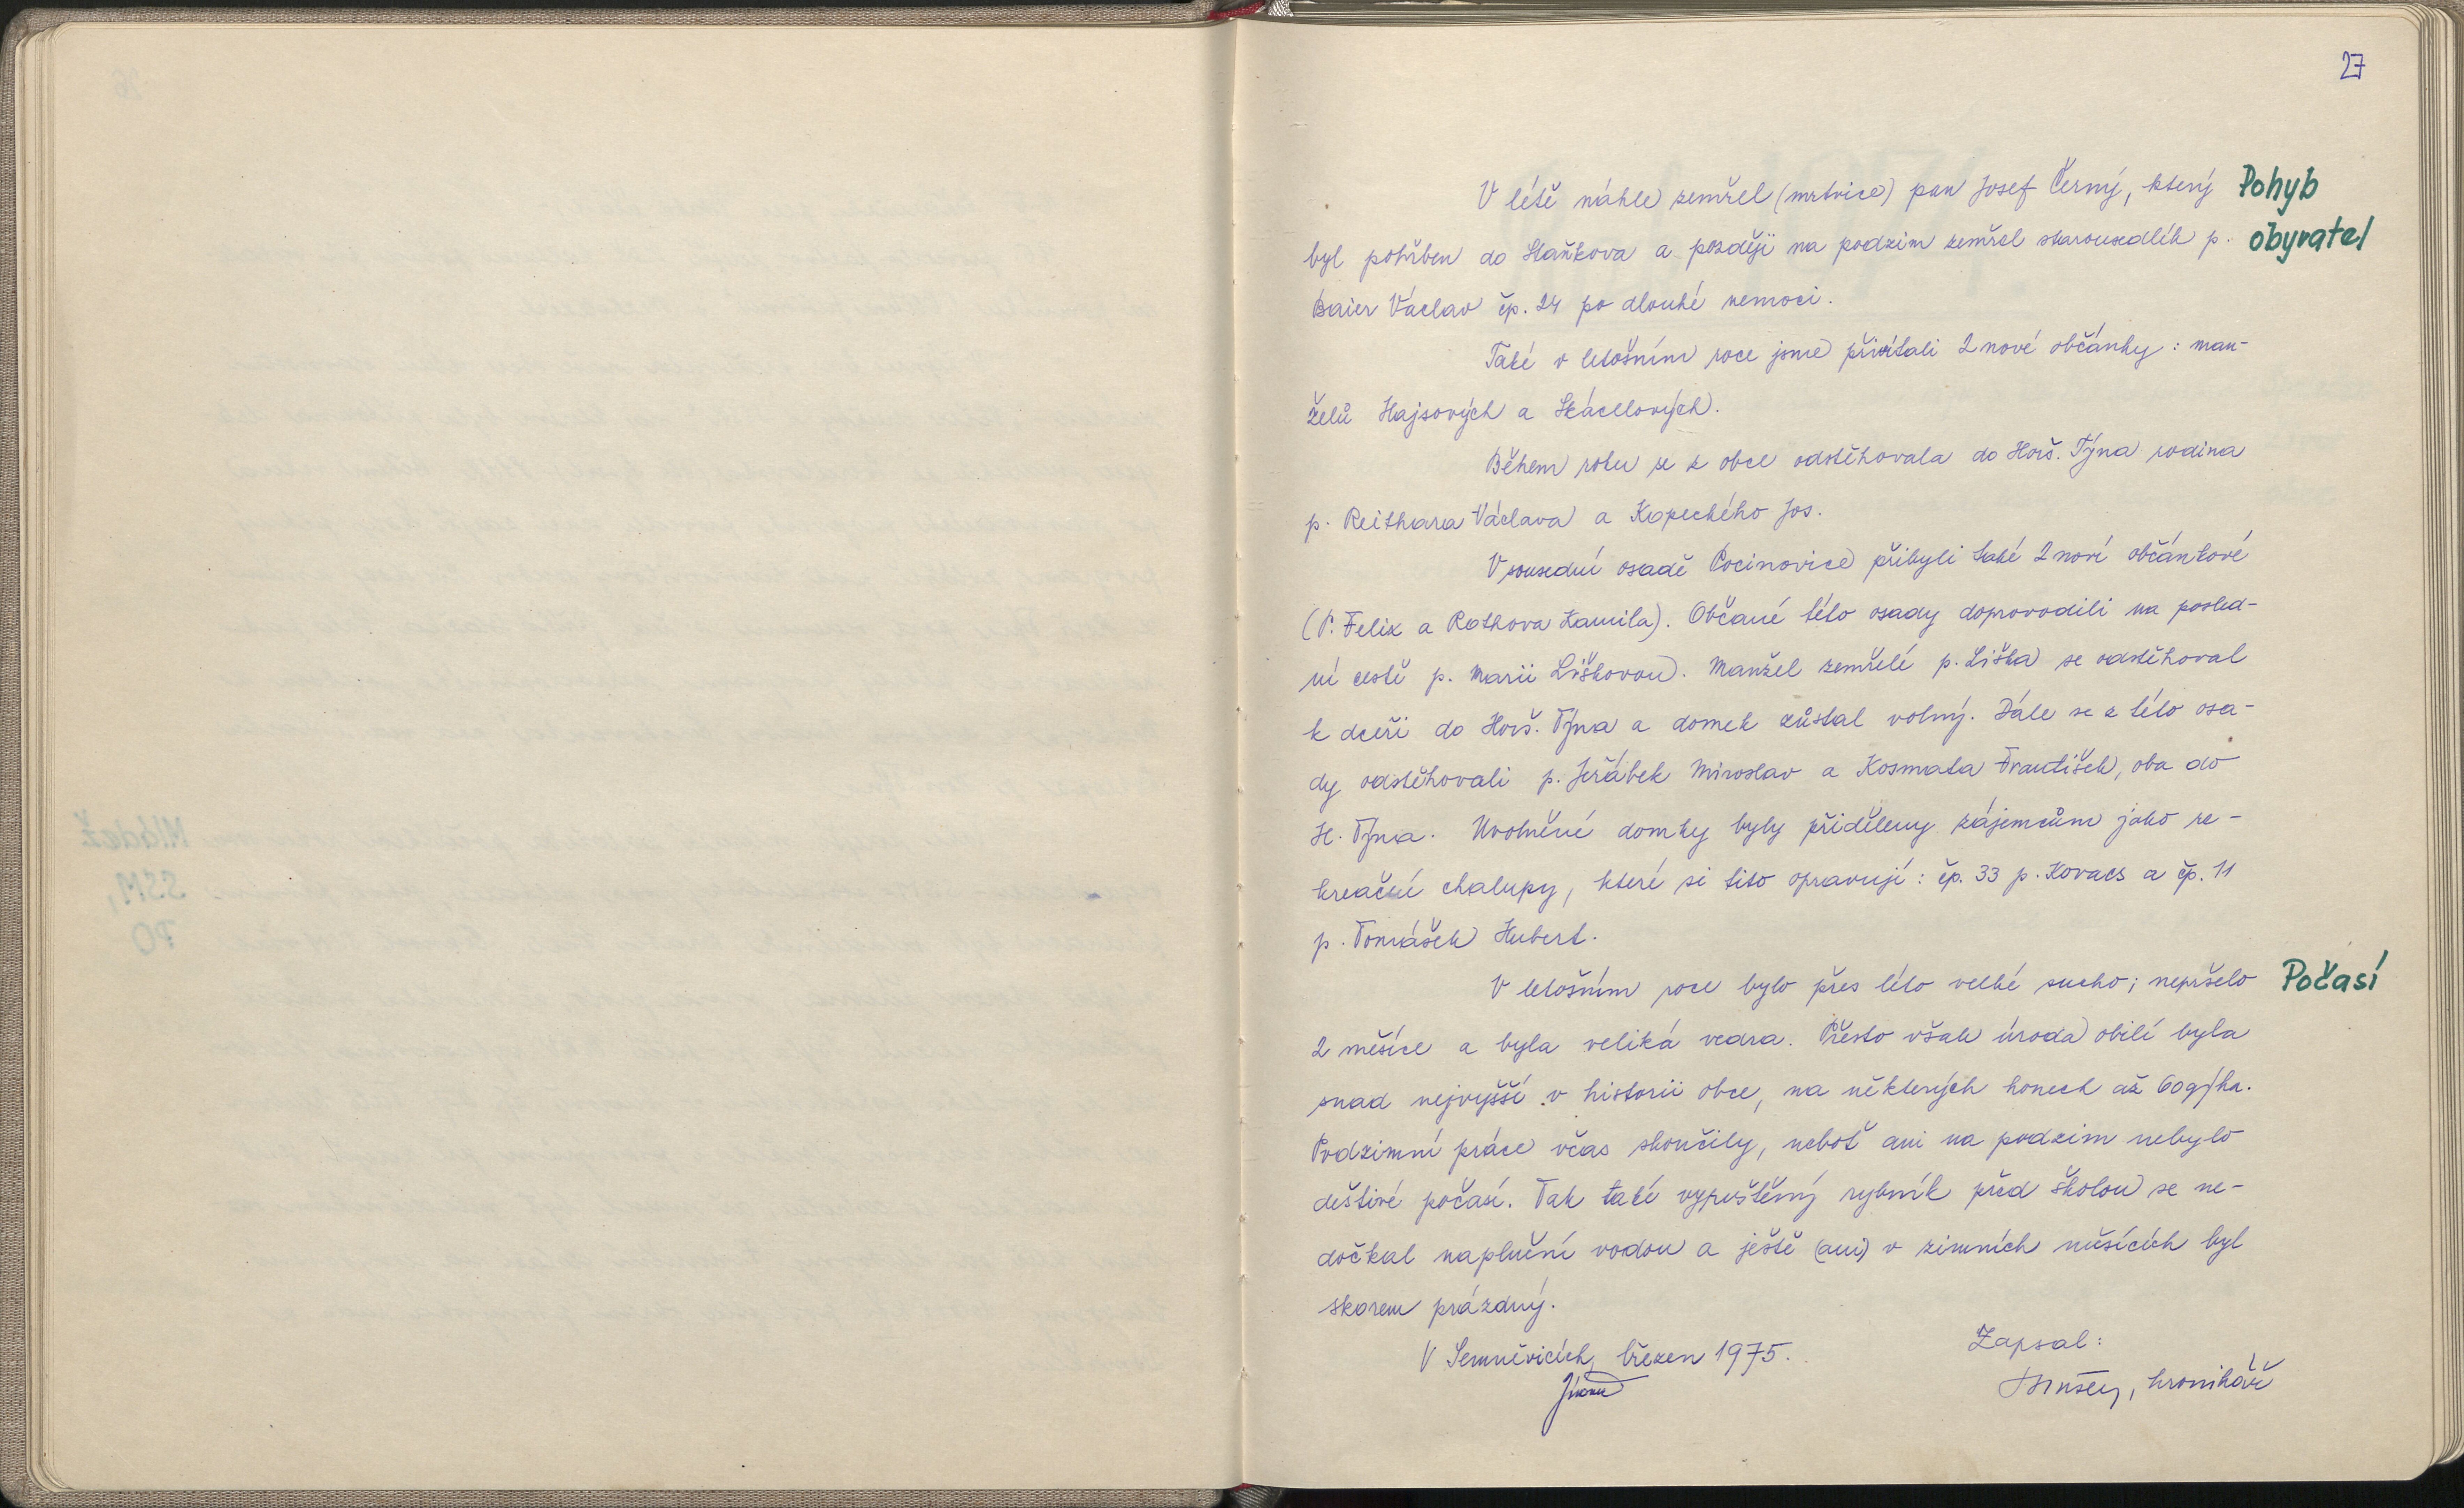 27
V létě náhle zemřel (mrtvice) pan Josef Černý, který Pohyb
byl pohřben do Staňkova a později na podzim zemřel starousedlík p. obyvatel
Baier Václav čp. 24 po dlouhé nemoci.
Také v letošním roce jsme přivítali 2 nové občánky: man-
želů Hajsových a Skácelových.
Během roku se z obce odstěhovala do Horš. Týna rodina
p. Reithara Václava a Kopeckého Jos.
V sousední osadě Pocinovice přibyli také 2 noví občánkové
(P. Felix a Rothova Kamila). Občané této osady doprovodili na posled-
ní cestě p. Marii Liškovou. Manžel zemřelé p. Liška se odstěhoval
k dceři do Horš. Týna a domek zůstal volný. Dále se z této osa-
dy odstěhovali p. Jeřábek Miroslav a Kosmata František, oba do
H. Týna. Uvolněné domky byly přiděleny zájemcům jako re-
kreační chalupy, které si tito opravují: čp. 33 p. Kovacs a čp. 11
p. Tomášek Hubert.
V letošním roce bylo přes léto velké sucho; nepršelo Počasí
2 měsíce a byla veliká vedra. Přesto však úroda obilí byla
snad nejvyšší v historii obce, na některých honech až 60q/ha.
Podzimní práce včas skončily, neboť ani na podzim nebylo
deštivé počasí. Tak také vypuštěný rybník před školou se ne-
dočkal naplnění vodou a ještě (ani) v zimních měsících byl
skorem prázdný.
V Semněvicích, březen 1975. Zapsal:
, kronikář